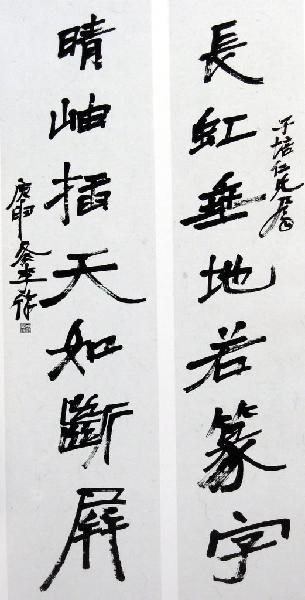 長虹垂地若篆字
子培仁兄屬
晴岫插天如斷屏
庚申